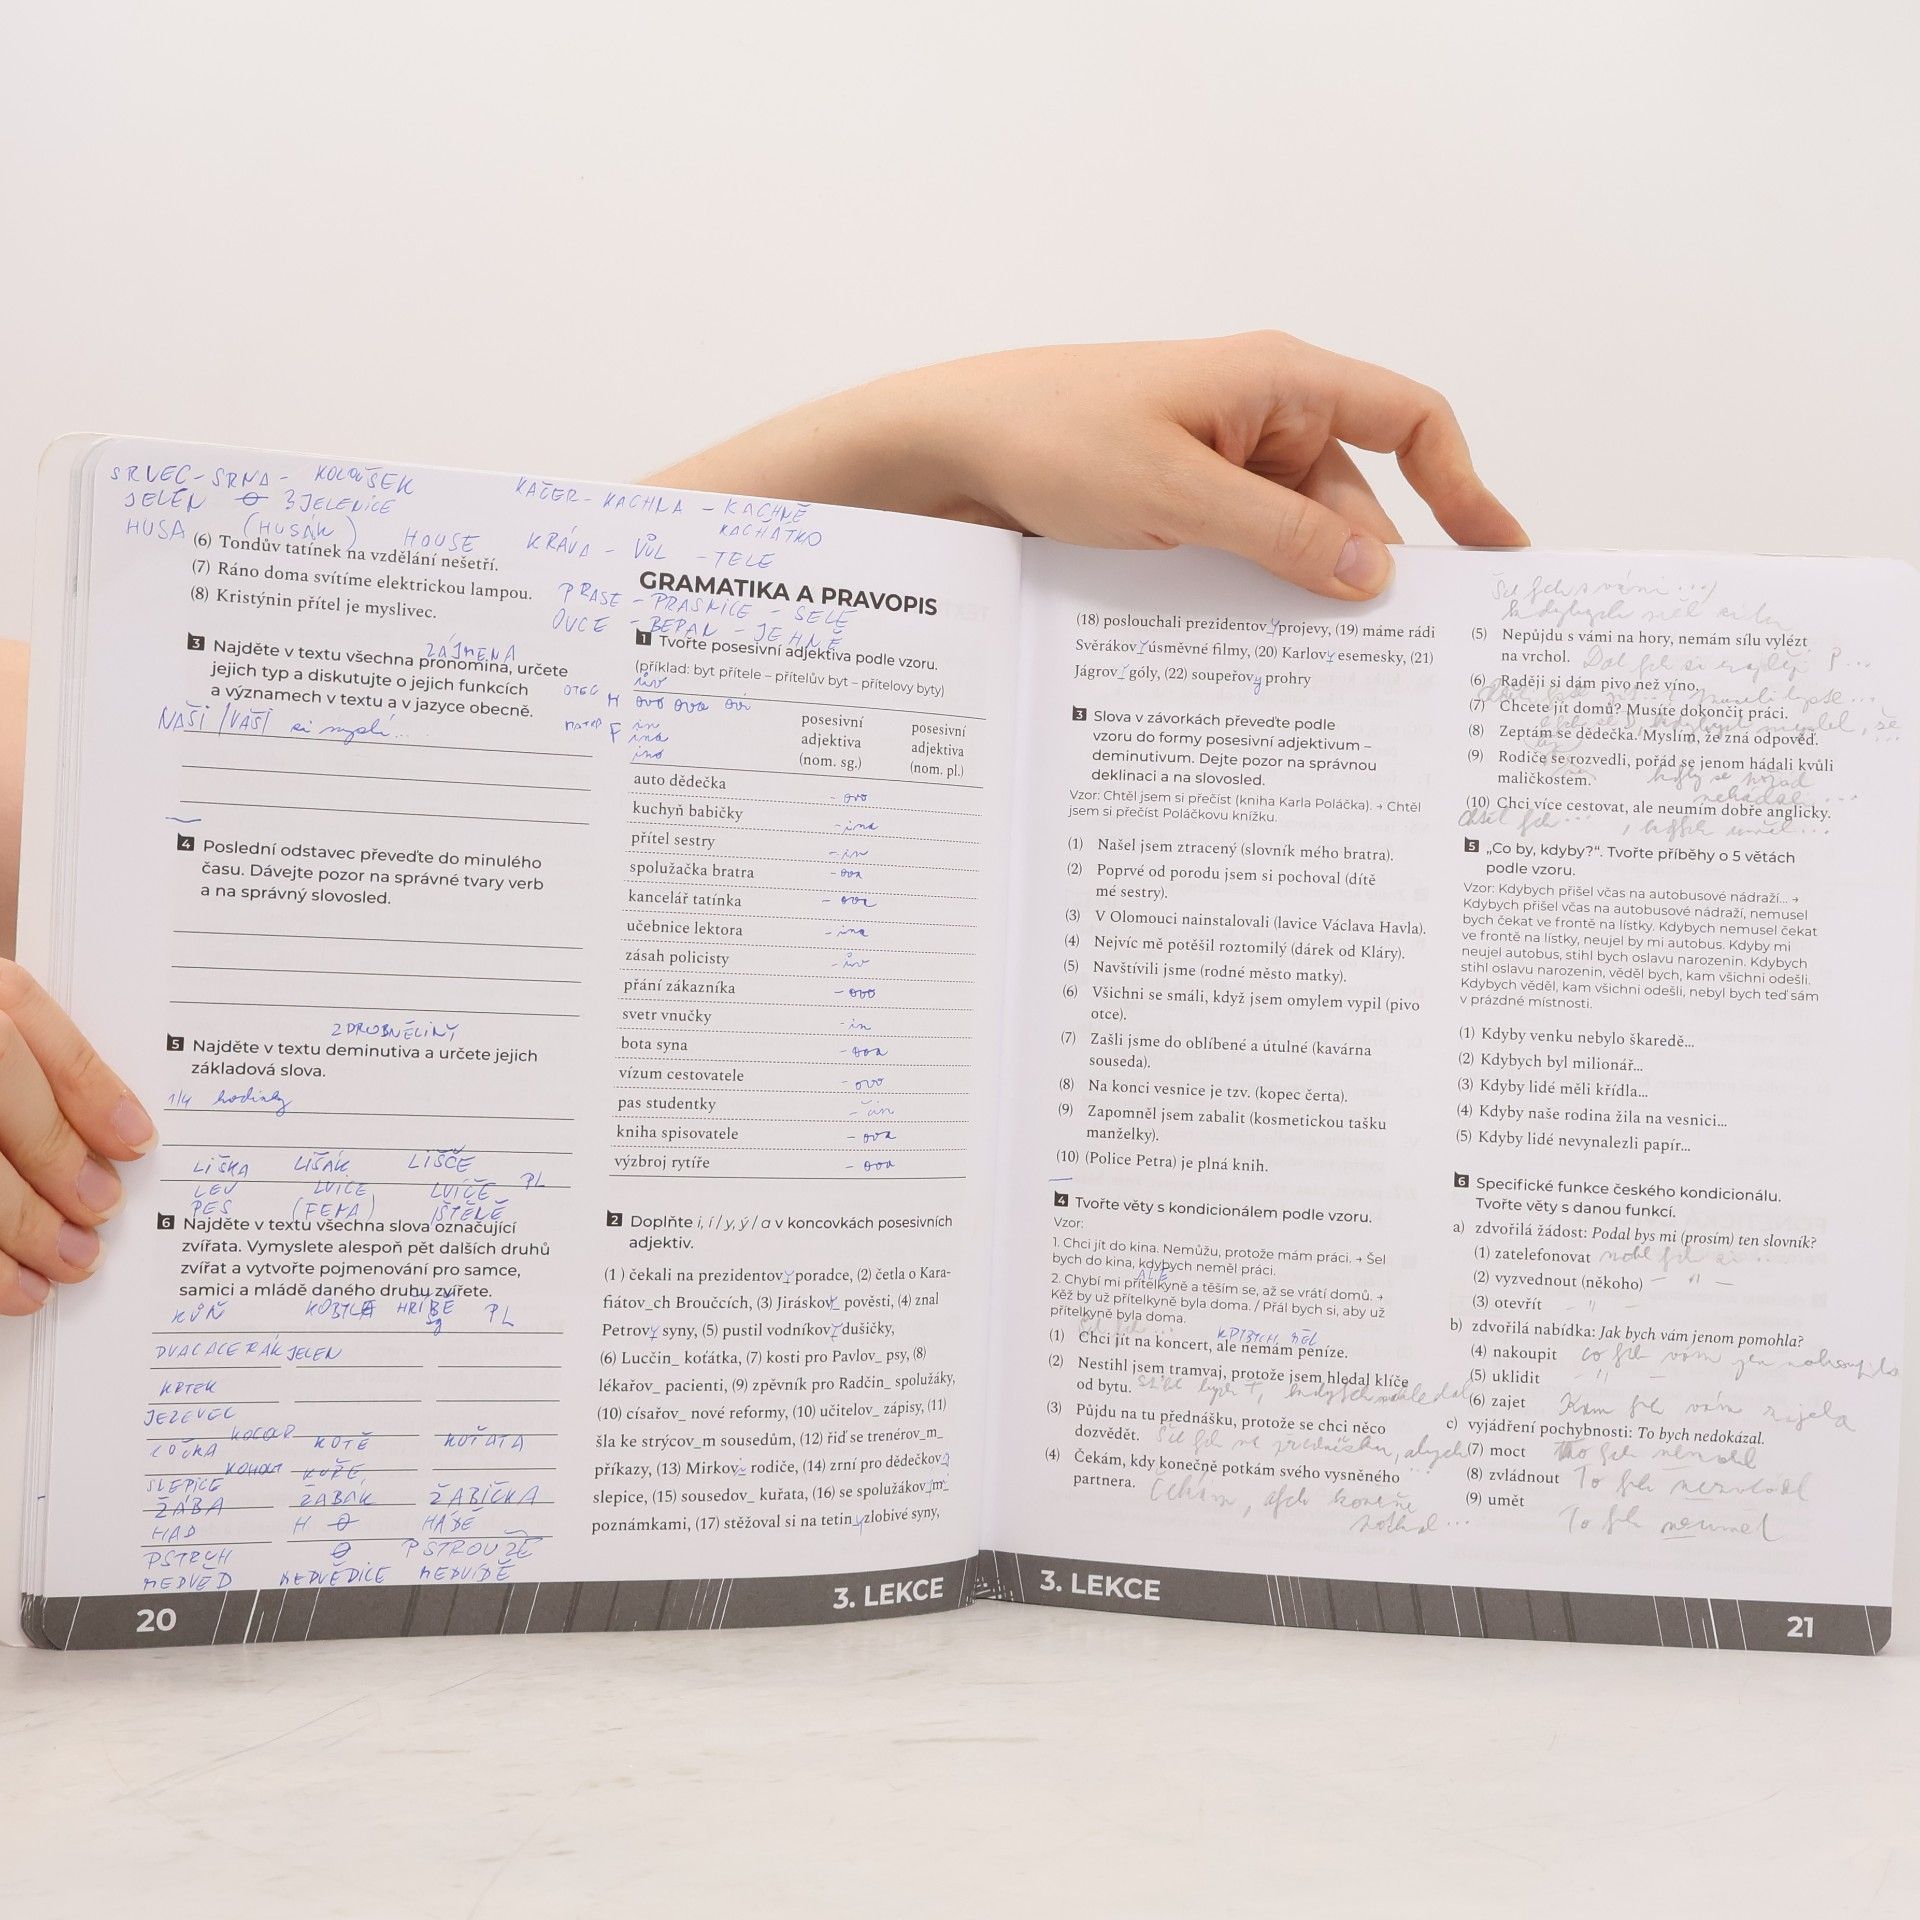 SRNEC - SRNA - KOLOUŠEK
JELEN 3 JELENICE
HUSA (HUSÁK) HOUSE
KAČER - KACHNA - KACHNĚ
KACHÁTKO
KRÁVA - VŮL - TELE
PRASE - PRASNICE - SELE
OVCE - BERAN - JEHNĚ
(6) Tondův tatínek na vzdělání nešetří.
(7) Ráno doma svítíme elektrickou lampou.
(8) Kristýnin přítel je myslivec.
ZÁJMENA
3 Najděte v textu všechna pronomina, určete
jejich typ a diskutujte o jejich funkcích
a významech v textu a v jazyce obecně.
NAŠI / VAŠI si myslí...
4 Poslední odstavec převeďte do minulého
času. Dávejte pozor na správné tvary verb
a na správný slovosled.
ZDROBNĚLINY
5 Najděte v textu deminutiva a určete jejich
základová slova.
1/4 hodinky
LIŠKA LIŠÁK LIŠČE
LEV LVICE LVÍČE PL
PES (FENA) ŠTĚNĚ
6 Najděte v textu všechna slova označující
zvířata. Vymyslete alespoň pět dalších druhů
zvířat a vytvořte pojmenování pro samce,
samici a mládě daného druhu zvířete.
KŮŇ KOBYLA HŘÍBĚ PL
sg
DVACATERÁK JELEN
KRTEK
JEZEVEC
KOČKA KOCOUR KOTĚ KOŤATA
SLEPICE KOHOUT KUŘE
ŽÁBA ŽABÁK ŽABIČKA
HAD H HÁDĚ
PSTRUH PSTROUŽE
MEDVĚD MEDVĚDICE MEDVÍDĚ
GRAMATIKA A PRAVOPIS
1 Tvořte posesivní adjektiva podle vzoru.
(příklad: byt přítele – přítelův byt – přítelovy byty)
ův
OTEC M ovo ova ovi
MATKA F in
ina
ino
posesivní posesivní
adjektiva adjektiva
(nom. sg.) (nom. pl.)
auto dědečka - ovo
kuchyň babičky - ina
přítel sestry - in
spolužačka bratra - ova
kancelář tatínka - ova
učebnice lektora - ina
zásah policisty - ův
přání zákazníka - ovo
svetr vnučky - in
bota syna - ova
vízum cestovatele - ovo
pas studentky - čin
kniha spisovatele - ova
výzbroj rytíře - ova
2 Doplňte i, í / y, ý / a v koncovkách posesivních
adjektiv.
(1 ) čekali na prezidentovy poradce, (2) četla o Kara-
fiátov_ch Broučcích, (3) Jiráskovy pověsti, (4) znal
Petrovy syny, (5) pustil vodníkovy dušičky,
(6) Lucčin_ koťátka, (7) kosti pro Pavlov_ psy, (8)
lékařov_ pacienti, (9) zpěvník pro Radčin_ spolužáky,
(10) císařov_ nové reformy, (10) učitelov_ zápisy, (11)
šla ke strýcov_m sousedům, (12) řiď se trenérov_m_
příkazy, (13) Mirkovi rodiče, (14) zrní pro dědečkovy
slepice, (15) sousedov_ kuřata, (16) se spolužákovými
poznámkami, (17) stěžoval si na tetiny zlobivé syny,
20 3. LEKCE
(18) poslouchali prezidentovy projevy, (19) máme rádi
Svěrákovy úsměvné filmy, (20) Karlovy esemesky, (21)
Jágrovy góly, (22) soupeřovy prohry
3 Slova v závorkách převeďte podle
vzoru do formy posesivní adjektivum –
deminutivum. Dejte pozor na správnou
deklinaci a na slovosled.
Vzor: Chtěl jsem si přečíst (kniha Karla Poláčka). → Chtěl
jsem si přečíst Poláčkovu knížku.
(1) Našel jsem ztracený (slovník mého bratra).
(2) Poprvé od porodu jsem si pochoval (dítě
mé sestry).
(3) V Olomouci nainstalovali (lavice Václava Havla).
(4) Nejvíc mě potěšil roztomilý (dárek od Kláry).
(5) Navštívili jsme (rodné město matky).
(6) Všichni se smáli, když jsem omylem vypil (pivo
otce).
(7) Zašli jsme do oblíbené a útulné (kavárna
souseda).
(8) Na konci vesnice je tzv. (kopec čerta).
(9) Zapomněl jsem zabalit (kosmetickou tašku
manželky).
(10) (Police Petra) je plná knih.
4 Tvořte věty s kondicionálem podle vzoru.
Vzor:
1. Chci jít do kina. Nemůžu, protože mám práci. → Šel
bych do kina, kdybych neměl práci.
ALE
2. Chybí mi přítelkyně a těším se, až se vrátí domů. →
Kéž by už přítelkyně byla doma. / Přál bych si, aby už
přítelkyně byla doma.
KDYBYCH MĚL
(1) Chci jít na koncert, ale nemám peníze.
(2) Nestihl jsem tramvaj, protože jsem hledal klíče
od bytu.
(3) Půjdu na tu přednášku, protože se chci něco
dozvědět.
(4) Čekám, kdy konečně potkám svého vysněného
partnera.
(5) Nepůjdu s vámi na hory, nemám sílu vylézt
na vrchol.
(6) Raději si dám pivo než víno.
(7) Chcete jít domů? Musíte dokončit práci.
(8) Zeptám se dědečka. Myslím, že zná odpověď.
(9) Rodiče se rozvedli, pořád se jenom hádali kvůli
maličkostem.
(10) Chci více cestovat, ale neumím dobře anglicky.
5 „Co by, kdyby?“. Tvořte příběhy o 5 větách
podle vzoru.
Vzor: Kdybych přišel včas na autobusové nádraží... →
Kdybych přišel včas na autobusové nádraží, nemusel
bych čekat ve frontě na lístky. Kdybych nemusel čekat
ve frontě na lístky, neujel by mi autobus. Kdyby mi
neujel autobus, stihl bych oslavu narozenin. Kdybych
stihl oslavu narozenin, věděl bych, kam všichni odešli.
Kdybych věděl, kam všichni odešli, nebyl bych teď sám
v prázdné místnosti.
(1) Kdyby venku nebylo škaredě...
(2) Kdybych byl milionář...
(3) Kdyby lidé měli křídla...
(4) Kdyby naše rodina žila na vesnici...
(5) Kdyby lidé nevynalezli papír...
6 Specifické funkce českého kondicionálu.
Tvořte věty s danou funkcí.
a) zdvořilá žádost: Podal bys mi (prosím) ten slovník?
(1) zatelefonovat
(2) vyzvednout (někoho) - " -
(3) otevřít - " -
b) zdvořilá nabídka: Jak bych vám jenom pomohla?
(4) nakoupit
(5) uklidit - " -
(6) zajet
c) vyjádření pochybnosti: To bych nedokázal.
(7) moct
(8) zvládnout
(9) umět
3. LEKCE 21